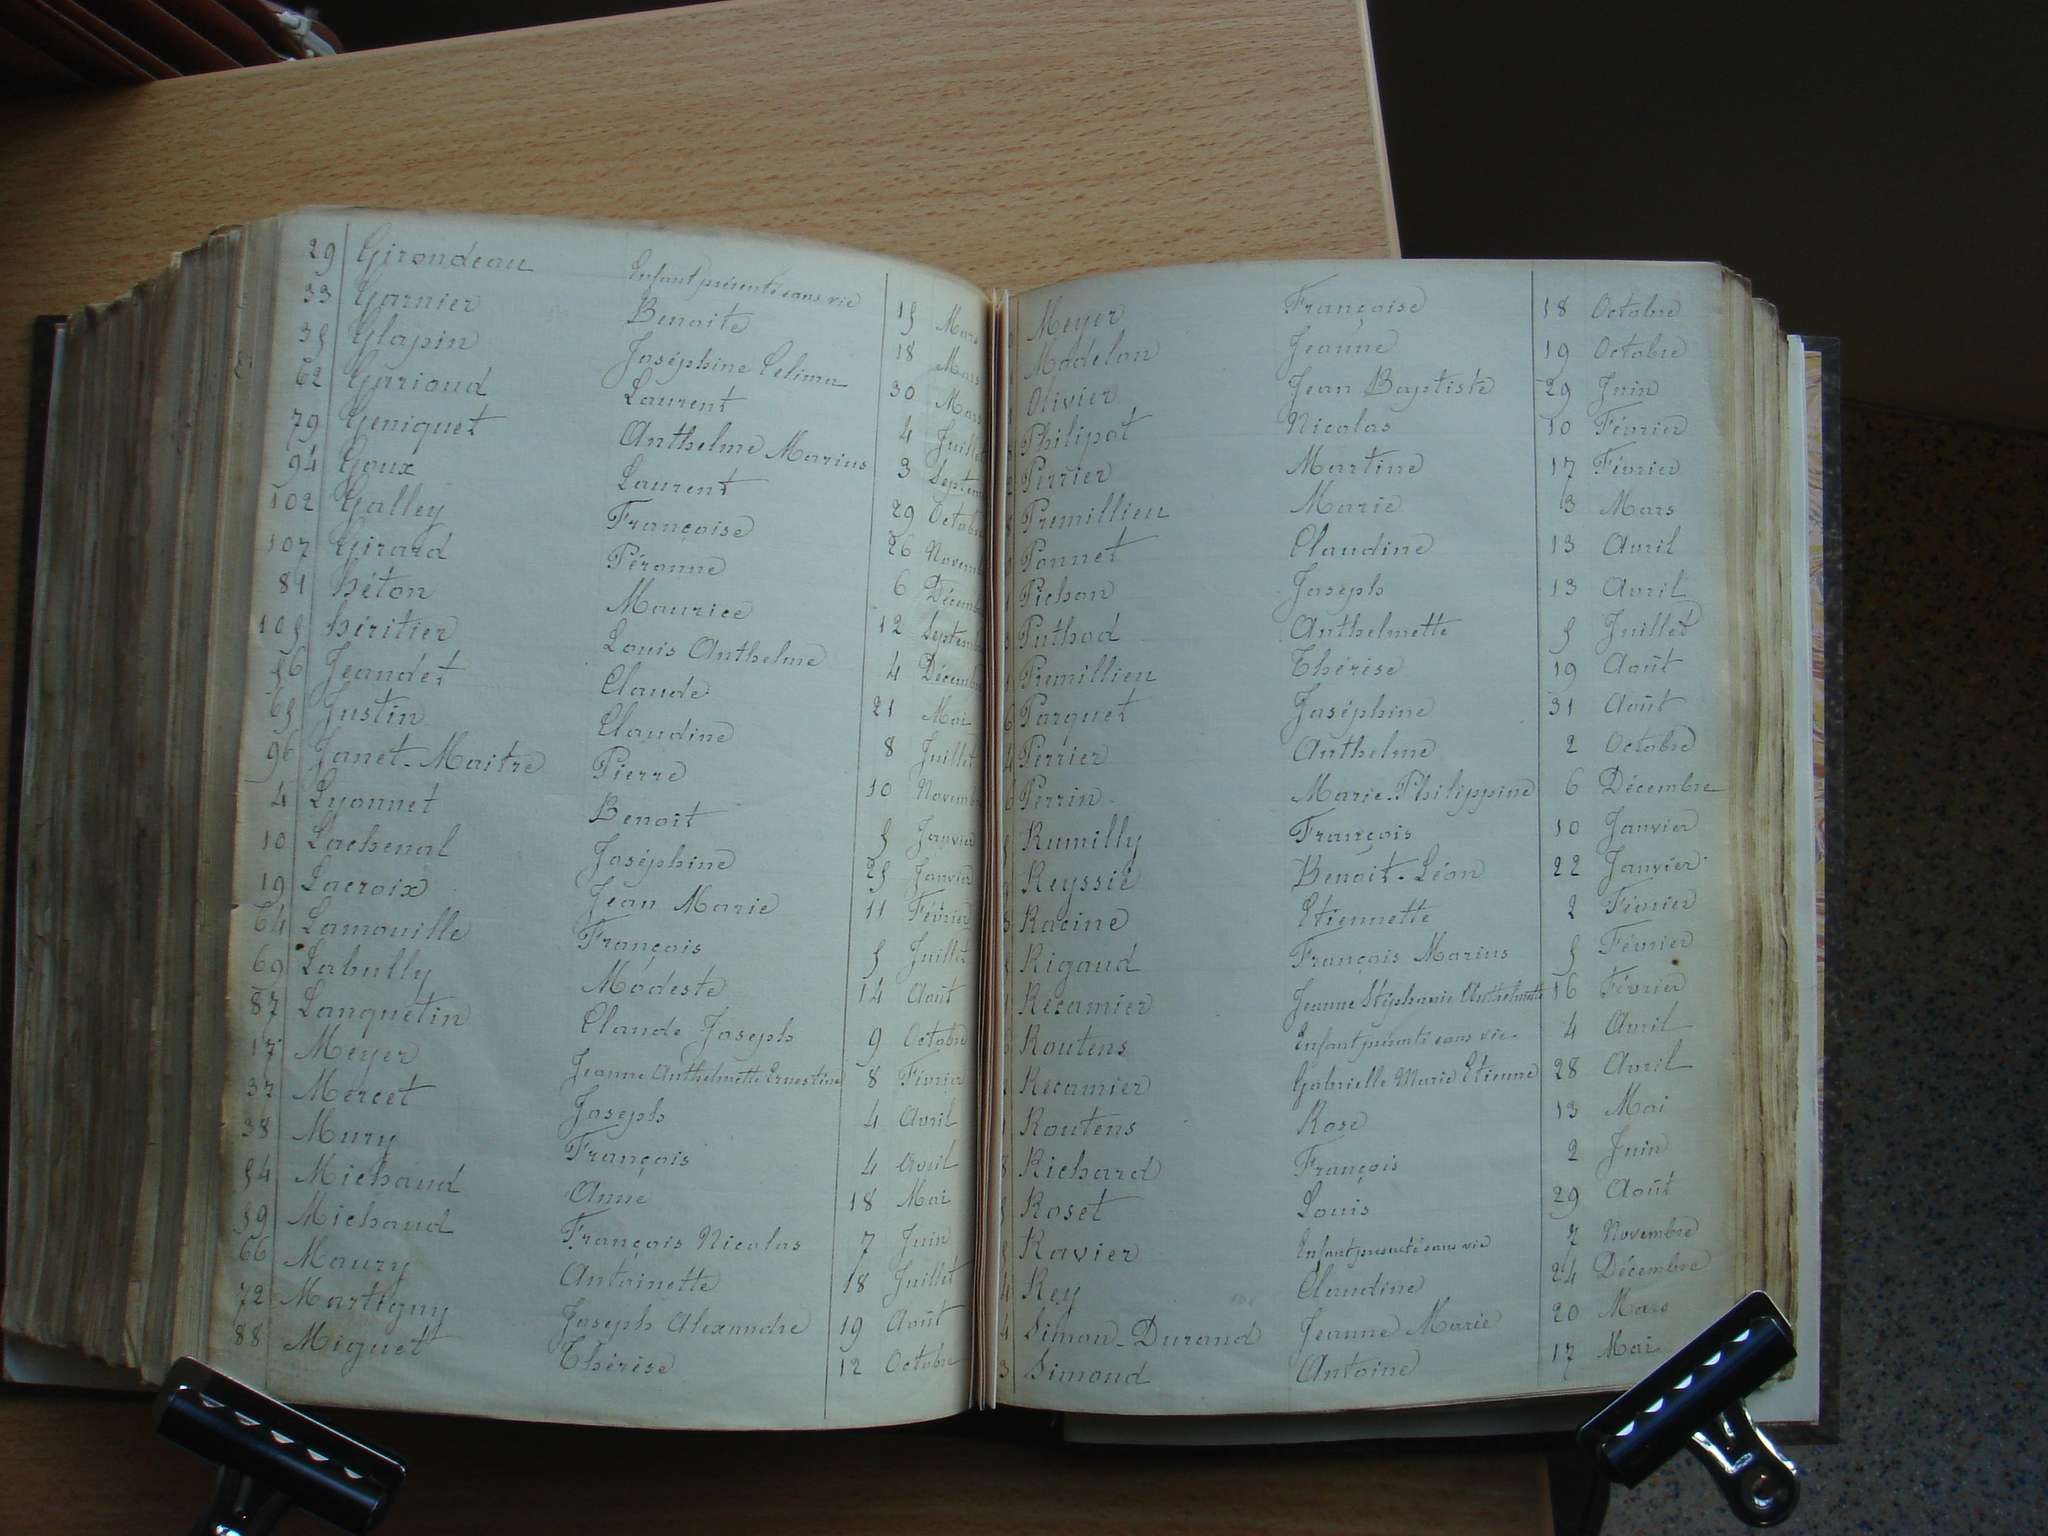 29 Girondeau Enfant présenté sans vie 15 Mars
33 Garnier Benoite 18 Mars
35 Glapin Joséphine Célima 30 Mars
62 Garioud Laurent 4 Juillet
79 Geniquet Anthelme Marius 3 Septem
94 Goux Laurent 29 Octobre
102 Galley Françoise 26 Novemb
107 Girard Péronne 6 Décemb
81 Héton Maurice 12 Septemb
105 Héritier Louis Anthelme 4 Décemb
56 Jeandet Claude 21 Mai
65 Justin Claudine 8 Juillet
96 Janet-Maitre Pierre 10 Novemb
4 Lyonnet Benoit 5 Janvier
10 Lachenal Joséphine 25 Janvier
19 Lacroix Jean Marie 11 Février
64 Lamouille François 5 Juillet
69 Labully Modeste 14 Août
87 Lanquetin Claude Joseph 9 Octobre
17 Meyer Jeanne Anthelmette Ernestine 8 Février
37 Mercet Joseph 4 Avril
38 Mury François 4 Avril
54 Michaud Anne 18 Mai
59 Michaud François Nicolas 7 Juin
66 Maury Antoinette 18 Juillet
72 Martigny Joseph Alexandre 19 Août
88 Miguet Thérèse 12 Octobre
Meyer Françoise 18 Octobre
Modelon Jeanne 19 Octobre
Olivier Jean Baptiste 29 Juin
Philipot Nicolas 10 Février
Perrier Martine 17 Février
Premillieu Marie 3 Mars
Ponnet Claudine 13 Avril
Pichon Joseph 13 Avril
Puthod Anthelmette 5 Juillet
Premillieu Thérèse 19 Août
6 Parquet Joséphine 31 Août
4 Perrier Anthelme 2 Octobre
6 Perrin Marie-Philippine 6 Décembre
Rumilly François 10 Janvier
Reyssié Benoit-Léon 22 Janvier
Racine Etiennette 2 Février
Rigaud François Marius 5 Février
Recamier Jeanne Stéphanie Anthelmette 16 Février
Routens Enfant présenté sans vie 4 Avril
Recamier Gabrielle Marie Etienne 28 Avril
Routens Rose 13 Mai
8 Richard François 2 Juin
Roset Louis 29 Août
Ravier Enfant présenté sans vie 7 Novembre
4 Rey Claudine 24 Décembre
4 Simon-Durand Jeanne Marie 20 Mars
3 Simond Antoine 17 Mai